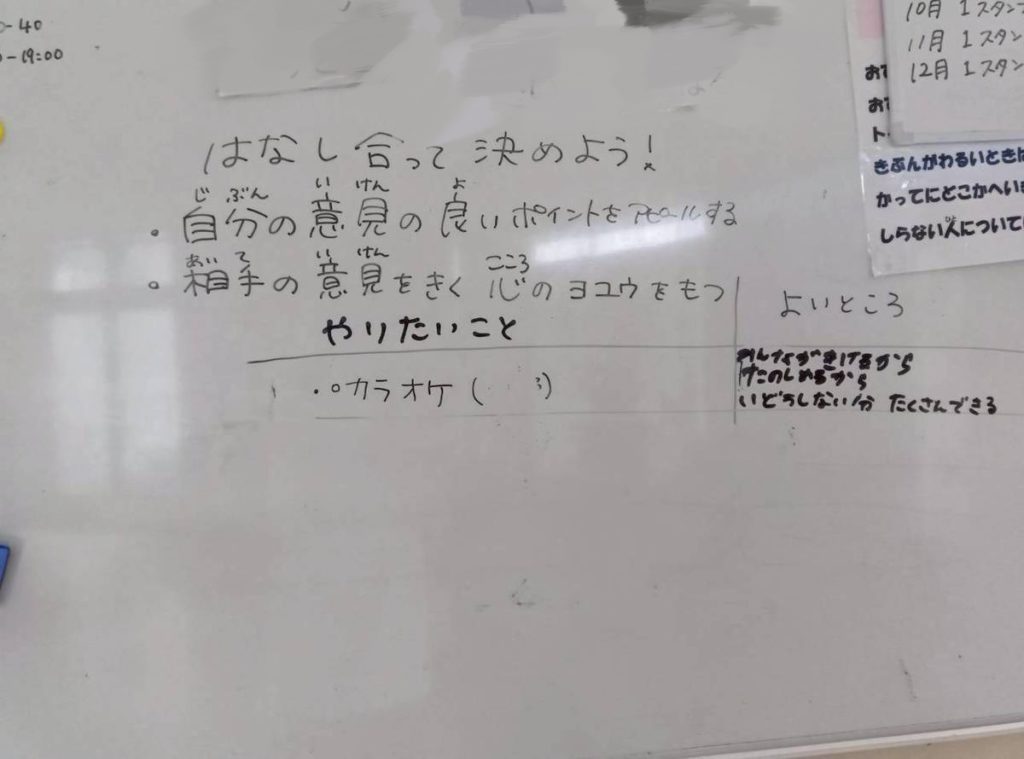 -40
-19:00
10月 1スタン
11月 1スタン
12月 1スタン
おて
おて
ト
きぶんがわるいときは
かってにどこかへい
しらない人について
はなし合って決めよう!
・自分の意見の良いポイントをアピールする
じ ぶん い けん よ
・相手の意見をきく心のヨユウをもつ
あい て い けん こころ
やりたいこと
よいところ
・カラオケ( 3)
みんながきけるから
たのしめるから
いどうしない分 たくさんできる